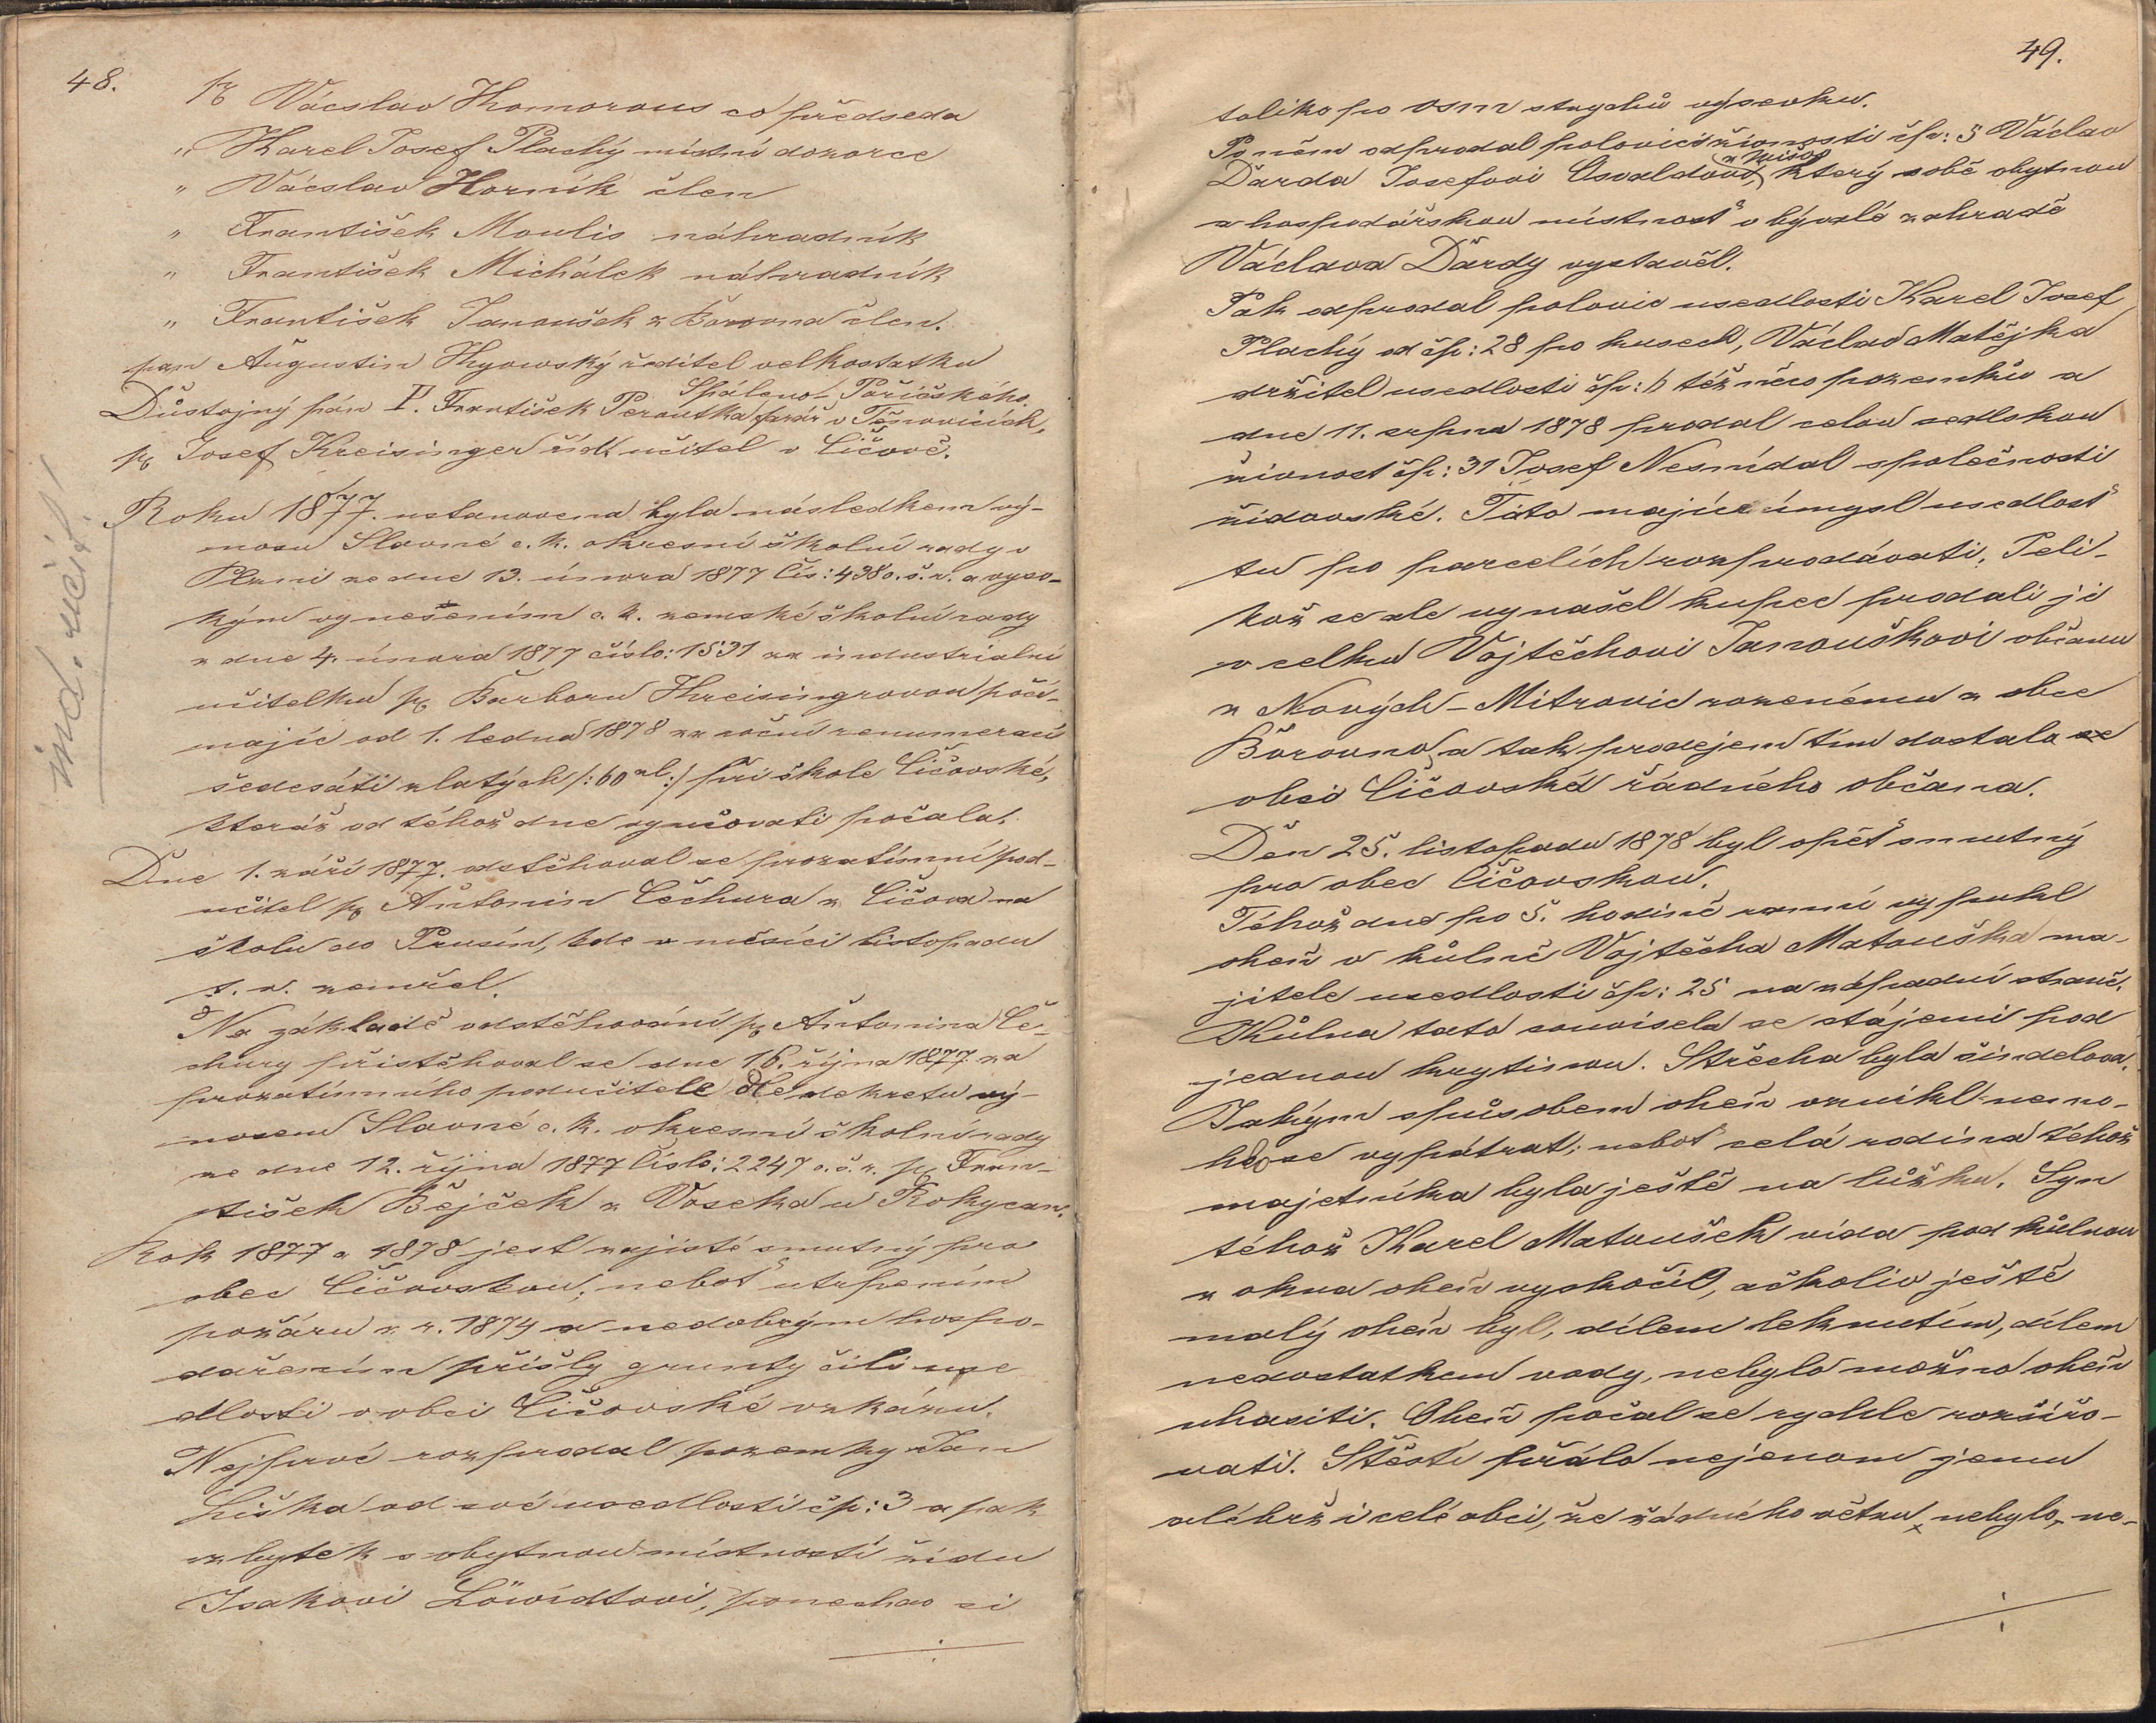 48.
p. Vácslav Komorous co předseda
" Karel Josef Plachý místní dozorce
" Vácslav Horník člen
" František Moulis náhradník
" František Michálek náhradník
" František Janoušek z Bořovna člen.
pan Augustin Kyovský ředitel velkostatku
Spáleno-Poříčského.
Důstojný pán P. František Peroutka farář v Těnovicích,
p. Josef Kreisinger říd. učitel v Číčově.
ind. učit.
Roku 1877. ustanovena byla následkem vý-
nosu Slavné c. k. okresní školní rady v
Plzni ze dne 13. února 1877 čís: 438 o. š. r. a vyso-
kým vynešením c. k. zemské školní rady
z dne 4. února 1877 číslo: 1531 za industrialní
učitelku p. Barboru Kreisingrovou počí-
majíc od 1. ledna 1878 za roční renumeraci
šedesáti zlatých /: 60 zl :/ při škole Číčovské,
kteráž od téhož dne vyučovati počala.
Dne 1. září 1877. odstěhoval se prozatímní pod-
učitel p. Antonin Čechura z Číčova na
školu do Prusín, kde v měsíci listopadu
t. r. zemřel.
Na základě odstěhování p. Antonina Če-
chury přistěhoval se dne 16. října 1877 za
prozatímního podučitele dle dekretu vý-
nosem Slavné c. k. okresní školní rady
ze dne 12. října 1877 číslo: 2247 o. š. r. p. Fran-
tišek Bejček z Voseka u Rokycan.
Rok 1877 a 1878 jest zajisté smutný pro
obec Číčovskou; neboť utrpením
požáru z r. 1874 a nedobrým hospo-
dařením přišly grunty čili use
dlosti v obci Číčovské v zkázu.
Nejprvé rozprodal pozemky Jan
Liška od své usedlosti čp: 3 a pak
zbytek s obytnou místností židu
Isakovi Löwidtovi, ponechav si
49.
toliko po osm strychů výsevku.
Po něm odprodal polovici živnosti čp: 5 Václav
z Mišova
Darda Josefovi Osvaldovi, který sobě obytnou
a hospodářskou místnost v bývalé zahradě
Václava Dardy vystavěl.
Pak odprodal polovic usedlosti Karel Josef
Plachý od čp: 28 po kusech, Václav Matějka
držitel usedlosti čp: 6 též něco pozemků a
dne 11. srpna 1878 prodal celou sedlskou
živnost čp: 31 Josef Nesnídal společnosti
židovské. Tato majíc úmysl usedlost
tu po parcelích rozprodávati. Jeli-
kož se ale vynašel kupec prodali ji
v celku Vojtěchovi Janouškovi občanu
z Nových-Mitrovic rozenému z obce
Bořovno, a tak prodejem tím dostalo se
obci Číčovské řádného občana.
Den 25. listopadu 1878 byl opět smutný
pro obec Číčovskou.
Téhož dne po 5. hodině ranní vypukl
oheň v kůlně Vojtěcha Matouška ma-
jitele usedlosti čp: 25 na západní straně.
Kůlna tato souvisela se stájemi pod
jednou krytinou. Střecha byla šindelova.
Jakým spůsobem oheň vznikl nemo-
hlo se vypátrat; neboť celá rodina téhož
majetníka byla ještě na lůžku. Syn
téhož Karel Matoušek vida pod kůlnou
z okna oheň vyskočil, ačkoliv ještě
malý oheň byl, dílem leknutím, dílem
nedostatkem vody, nebylo možno oheň
uhasiti. Oheň počal se rychle rozšiřo-
vati. Štěstí přálo nejenom jemu
alébrž i celé obci, že žádného větru nebylo, ne-